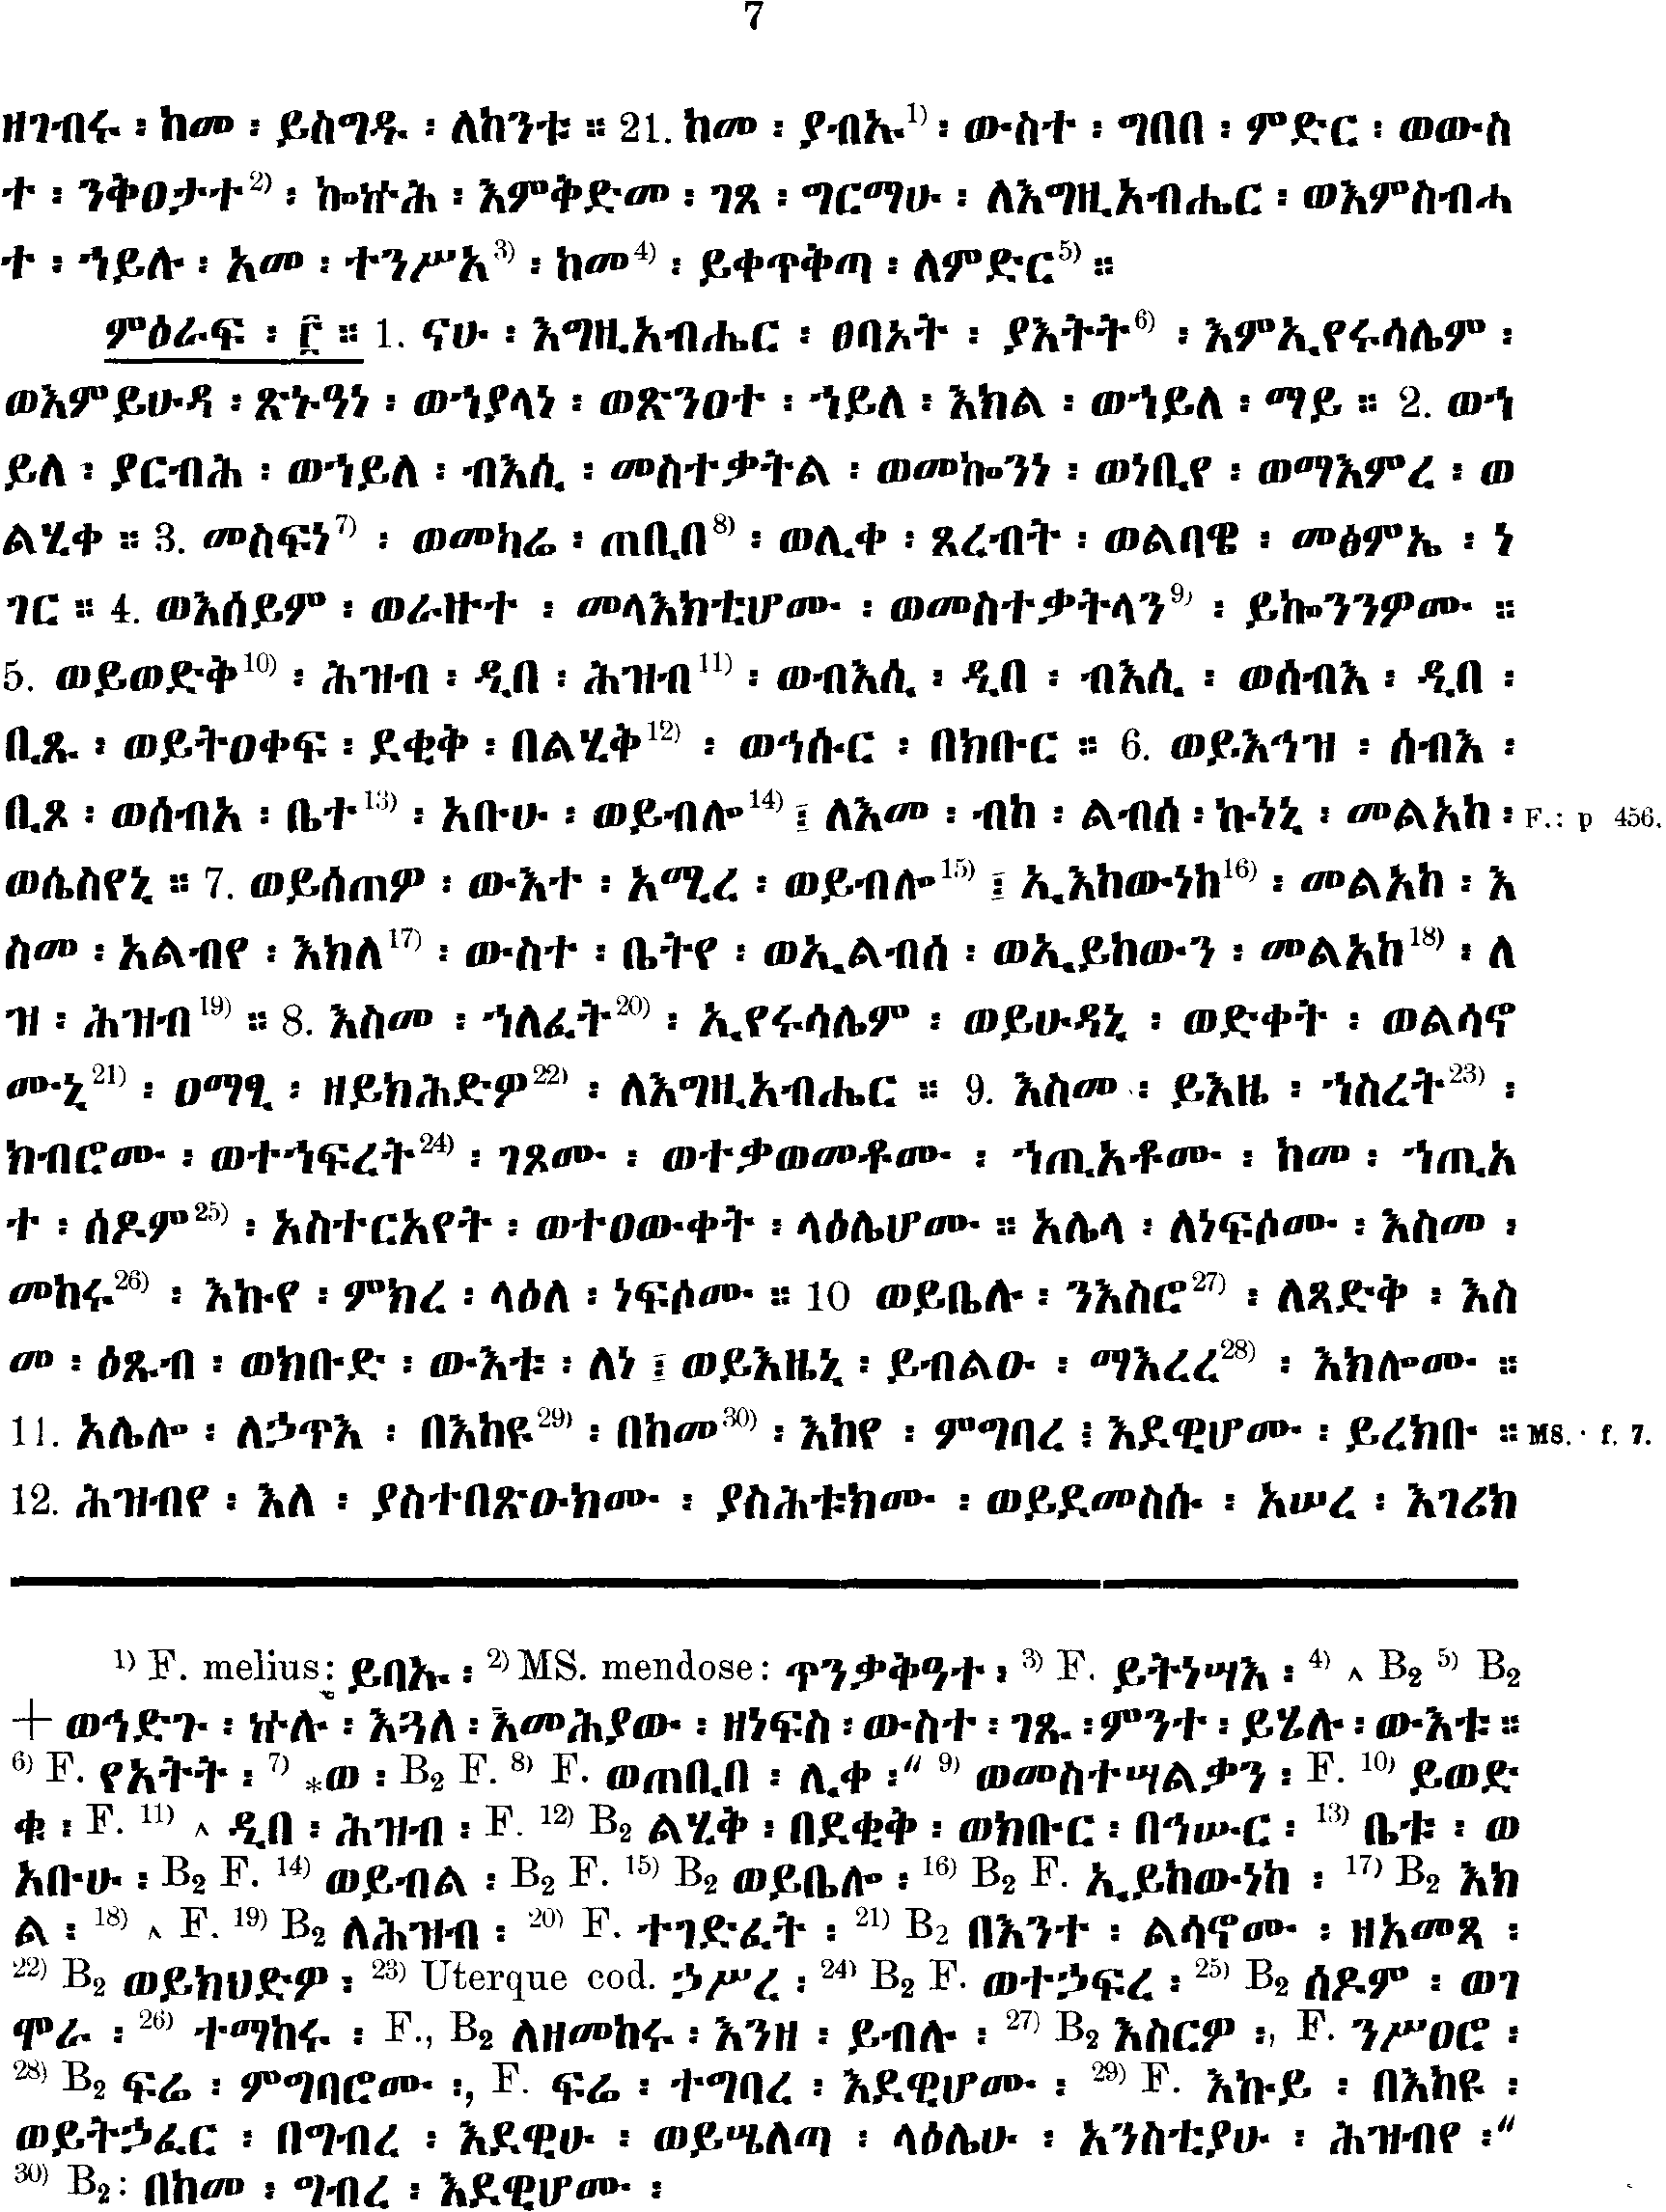 7
ዘገብሩ ፡ ከመ ፡ ይስግዱ ፡ ለከንቱ ። 21. ከመ ፡ ያብኡ¹⁾ ፡ ውስተ ፡ ግበበ ፡ ምድር ፡ ወውስ
ተ ፡ ንቅዐታተ²⁾ ፡ ኰኵሕ ፡ እምቅድመ ፡ ገጸ ፡ ግርማሁ ፡ ለእግዚአብሔር ፡ ወእምስብሓ
ተ ፡ ኀይሉ ፡ አመ ፡ ተንሥአ³⁾ ፡ ከመ⁴⁾ ፡ ይቀጥቅጣ ፡ ለምድር⁵⁾ ።
ምዕራፍ ፡ ፫ ። 1. ናሁ ፡ እግዚአብሔር ፡ ፀባኦት ፡ ያእትት⁶⁾ ፡ እምኢየሩሳሌም ፡
ወእምይሁዳ ፡ ጽኑዓነ ፡ ወኀያላነ ፡ ወጽንዐተ ፡ ኀይለ ፡ እክል ፡ ወኀይለ ፡ ማይ ። 2. ወኀ
ይለ ፡ ያርብሕ ፡ ወኀይለ ፡ ብእሲ ፡ መስተቃትል ፡ ወመኰንነ ፡ ወነቢየ ፡ ወማእምረ ፡ ወ
ልሂቀ ። 3. መስፍነ⁷⁾ ፡ ወመካሬ ፡ ጠቢበ⁸⁾ ፡ ወሊቀ ፡ ጸረብት ፡ ወልባዌ ፡ መፅምኤ ፡ ነ
ገር ። 4. ወእሰይም ፡ ወራዙተ ፡ መላእክቲሆሙ ፡ ወመስተቃትላን⁹⁾ ፡ ይኰንንዎሙ ።
5. ወይወድቅ¹⁰⁾ ፡ ሕዝብ ፡ ዲበ ፡ ሕዝብ¹¹⁾ ፡ ወብእሲ ፡ ዲበ ፡ ብእሲ ፡ ወሰብእ ፡ ዲበ ፡
ቢጹ ፡ ወይትዐቀፍ ፡ ደቂቅ ፡ በልሂቅ¹²⁾ ፡ ወኅሱር ፡ በክቡር ። 6. ወይእኅዝ ፡ ሰብእ ፡
ቢጾ ፡ ወሰብአ ፡ ቤተ¹³⁾ ፡ አቡሁ ፡ ወይብሎ¹⁴⁾ ፤ ለእመ ፡ ብከ ፡ ልብሰ ፡ ኩነኒ ፡ መልአከ ፡ F.: p 456.
ወሴስየኒ ። 7. ወይሰጠዎ ፡ ውእተ ፡ አሚረ ፡ ወይብሎ¹⁵⁾ ፤ ኢእከውነከ¹⁶⁾ ፡ መልአከ ፡ እ
ስመ ፡ አልብየ ፡ እክለ¹⁷⁾ ፡ ውስተ ፡ ቤትየ ፡ ወኢልብሰ ፡ ወኢይከውን ፡ መልአከ¹⁸⁾ ፡ ለ
ዝ ፡ ሕዝብ¹⁹⁾ ። 8. እስመ ፡ ኀለፈት²⁰⁾ ፡ ኢየሩሳሌም ፡ ወይሁዳኒ ፡ ወድቀት ፡ ወልሳኖ
ሙኒ²¹⁾ ፡ ዐማፂ ፡ ዘይክሕድዎ²²⁾ ፡ ለእግዚአብሔር ። 9. እስመ ፡ ይእዜ ፡ ኀስረት²³⁾ ፡
ክብሮሙ ፡ ወተኀፍረት²⁴⁾ ፡ ገጾሙ ፡ ወተቃወመቶሙ ፡ ኀጢአቶሙ ፡ ከመ ፡ ኀጢአ
ተ ፡ ሰዶም²⁵⁾ ፡ አስተርአየት ፡ ወተዐውቀት ፡ ላዕሌሆሙ ። አሌላ ፡ ለነፍሶሙ ፡ እስመ ፡
መከሩ²⁶⁾ ፡ እኩየ ፡ ምክረ ፡ ላዕለ ፡ ነፍሶሙ ። 10 ወይቤሉ ፡ ንእስሮ²⁷⁾ ፡ ለጻድቅ ፡ እስ
መ ፡ ዕጹብ ፡ ወክቡድ ፡ ውእቱ ፡ ለነ ፤ ወይእዜኒ ፡ ይብልዑ ፡ ማእረረ²⁸⁾ ፡ እክሎሙ ።
11. አሌሎ ፡ ለኃጥእ ፡ በእከዩ²⁹⁾ ፡ በከመ³⁰⁾ ፡ እከየ ፡ ምግባረ ፤ እደዊሆሙ ፡ ይረክቡ ። MS. f. 7.
12. ሕዝብየ ፡ እለ ፡ ያስተበጽዑክሙ ፡ ያስሕቱክሙ ፡ ወይደመስሱ ፡ አሠረ ፡ እገሪክ
¹⁾ F. melius: ይባኡ ፡ ²⁾ MS. mendose: ጥንቃቅዓተ ፡ ³⁾ F. ይትነሣእ ፡ ⁴⁾ ^ B₂ ⁵⁾ B₂
+ ወኅድጉ ፡ ኵሉ ፡ እጓለ ፡ እመሕያው ፡ ዘነፍስ ፡ ውስተ ፡ ገጹ ፡ ምንተ ፡ ይሄሉ ፡ ውእቱ ።
⁶⁾ F. የአትት ፡ ⁷⁾ *ወ ፡ B₂ F. ⁸⁾ F. ወጠቢበ ፡ ሊቀ ፡“ ⁹⁾ ወመስተሣልቃን ፡ F. ¹⁰⁾ ይወድ
ቁ ፡ F. ¹¹⁾ ^ ዲበ ፡ ሕዝብ ፡ F. ¹²⁾ B₂ ልሂቅ ፡ በደቂቅ ፡ ወክቡር ፡ በኅሡር ፡ ¹³⁾ ቤቱ ፡ ወ
አቡሁ ፡ B₂ F. ¹⁴⁾ ወይብል ፡ B₂ F. ¹⁵⁾ B₂ ወይቤሎ ፡ ¹⁶⁾ B₂ F. ኢይከውነከ ፡ ¹⁷⁾ B₂ እክ
ል ፡ ¹⁸⁾ ^ F. ¹⁹⁾ B₂ ለሕዝብ ፡ ²⁰⁾ F. ተገድፈት ፡ ²¹⁾ B₂ በእንተ ፡ ልሳኖሙ ፡ ዘአመጻ ፡
²²⁾ B₂ ወይክህድዎ ፡ ²³⁾ Uterque cod. ኃሥረ ፡ ²⁴⁾ B₂ F. ወተኃፍረ ፡ ²⁵⁾ B₂ ሰዶም ፡ ወገ
ሞራ ፡ ²⁶⁾ ተማከሩ ፡ F., B₂ ለዘመከሩ ፡ እንዘ ፡ ይብሉ ፡ ²⁷⁾ B₂ እስርዎ ፡, F. ንሥዐሮ ፡
²⁸⁾ B₂ ፍሬ ፡ ምግባሮሙ ፡, F. ፍሬ ፡ ተግባረ ፡ እደዊሆሙ ፡ ²⁹⁾ F. እኩይ ፡ በእከዩ ፡
ወይትኃፈር ፡ በግብረ ፡ እደዊሁ ፡ ወይሤለጣ ፡ ላዕሌሁ ፡ አንስቲያሁ ፡ ሕዝብየ ፡“
³⁰⁾ B₂: በከመ ፡ ግብረ ፡ እደዊሆሙ ፡